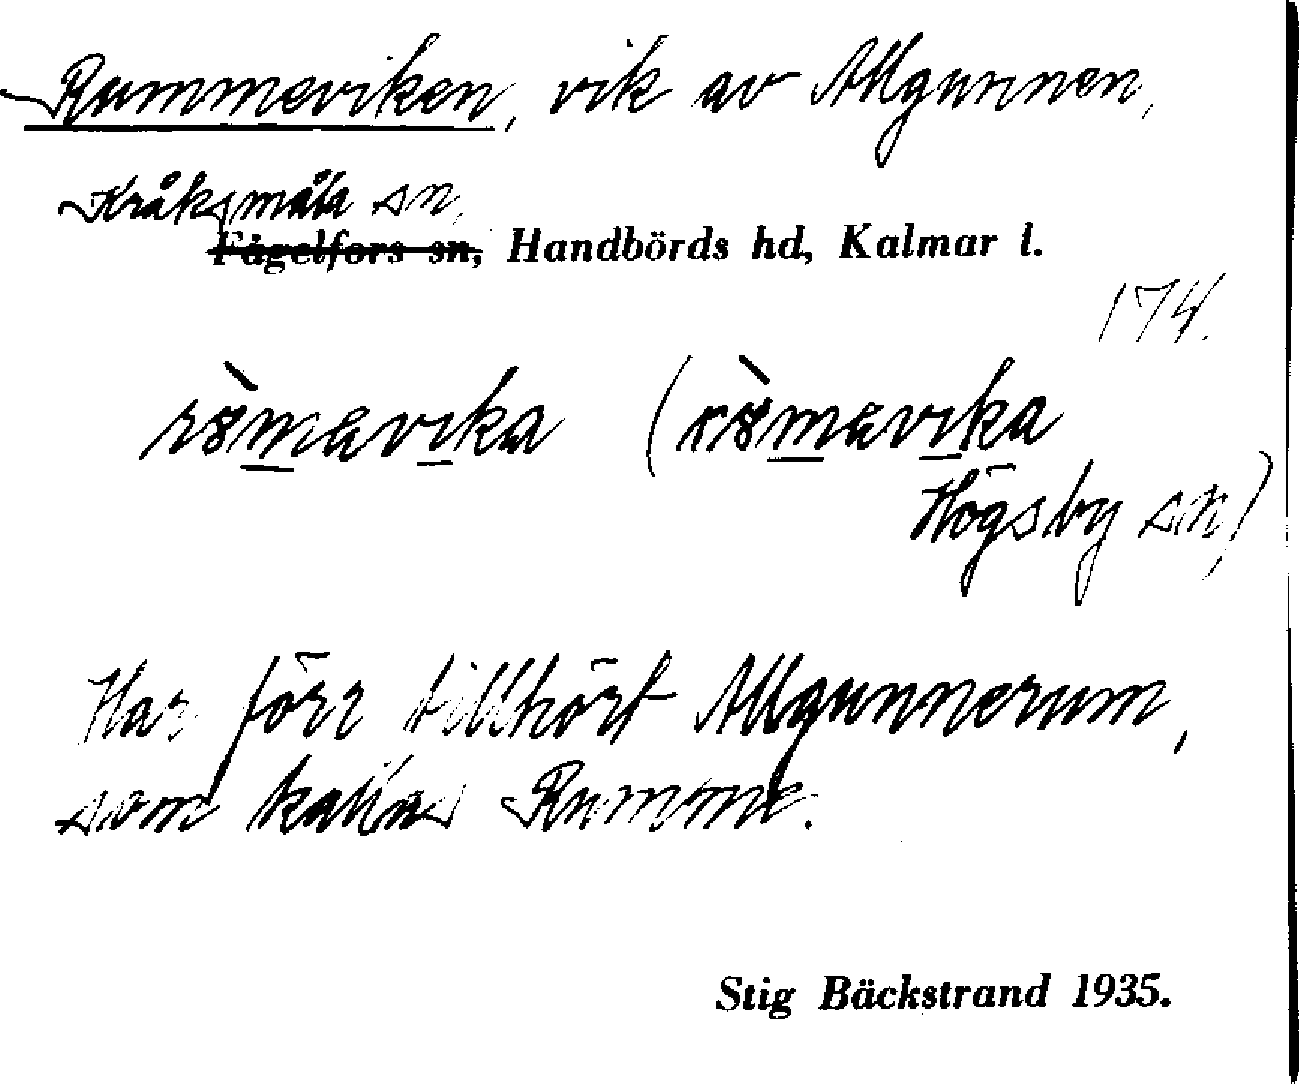 Rummeviken, vik av Allgunnen,
Kråksmåla sn,
Fågelfors sn, Handbörds hd, Kalmar l.
174.
(
Högsby sn)
Har förr tillhört Allgunnerum,
som kallas Rumme.
Stig Bäckstrand 1935.